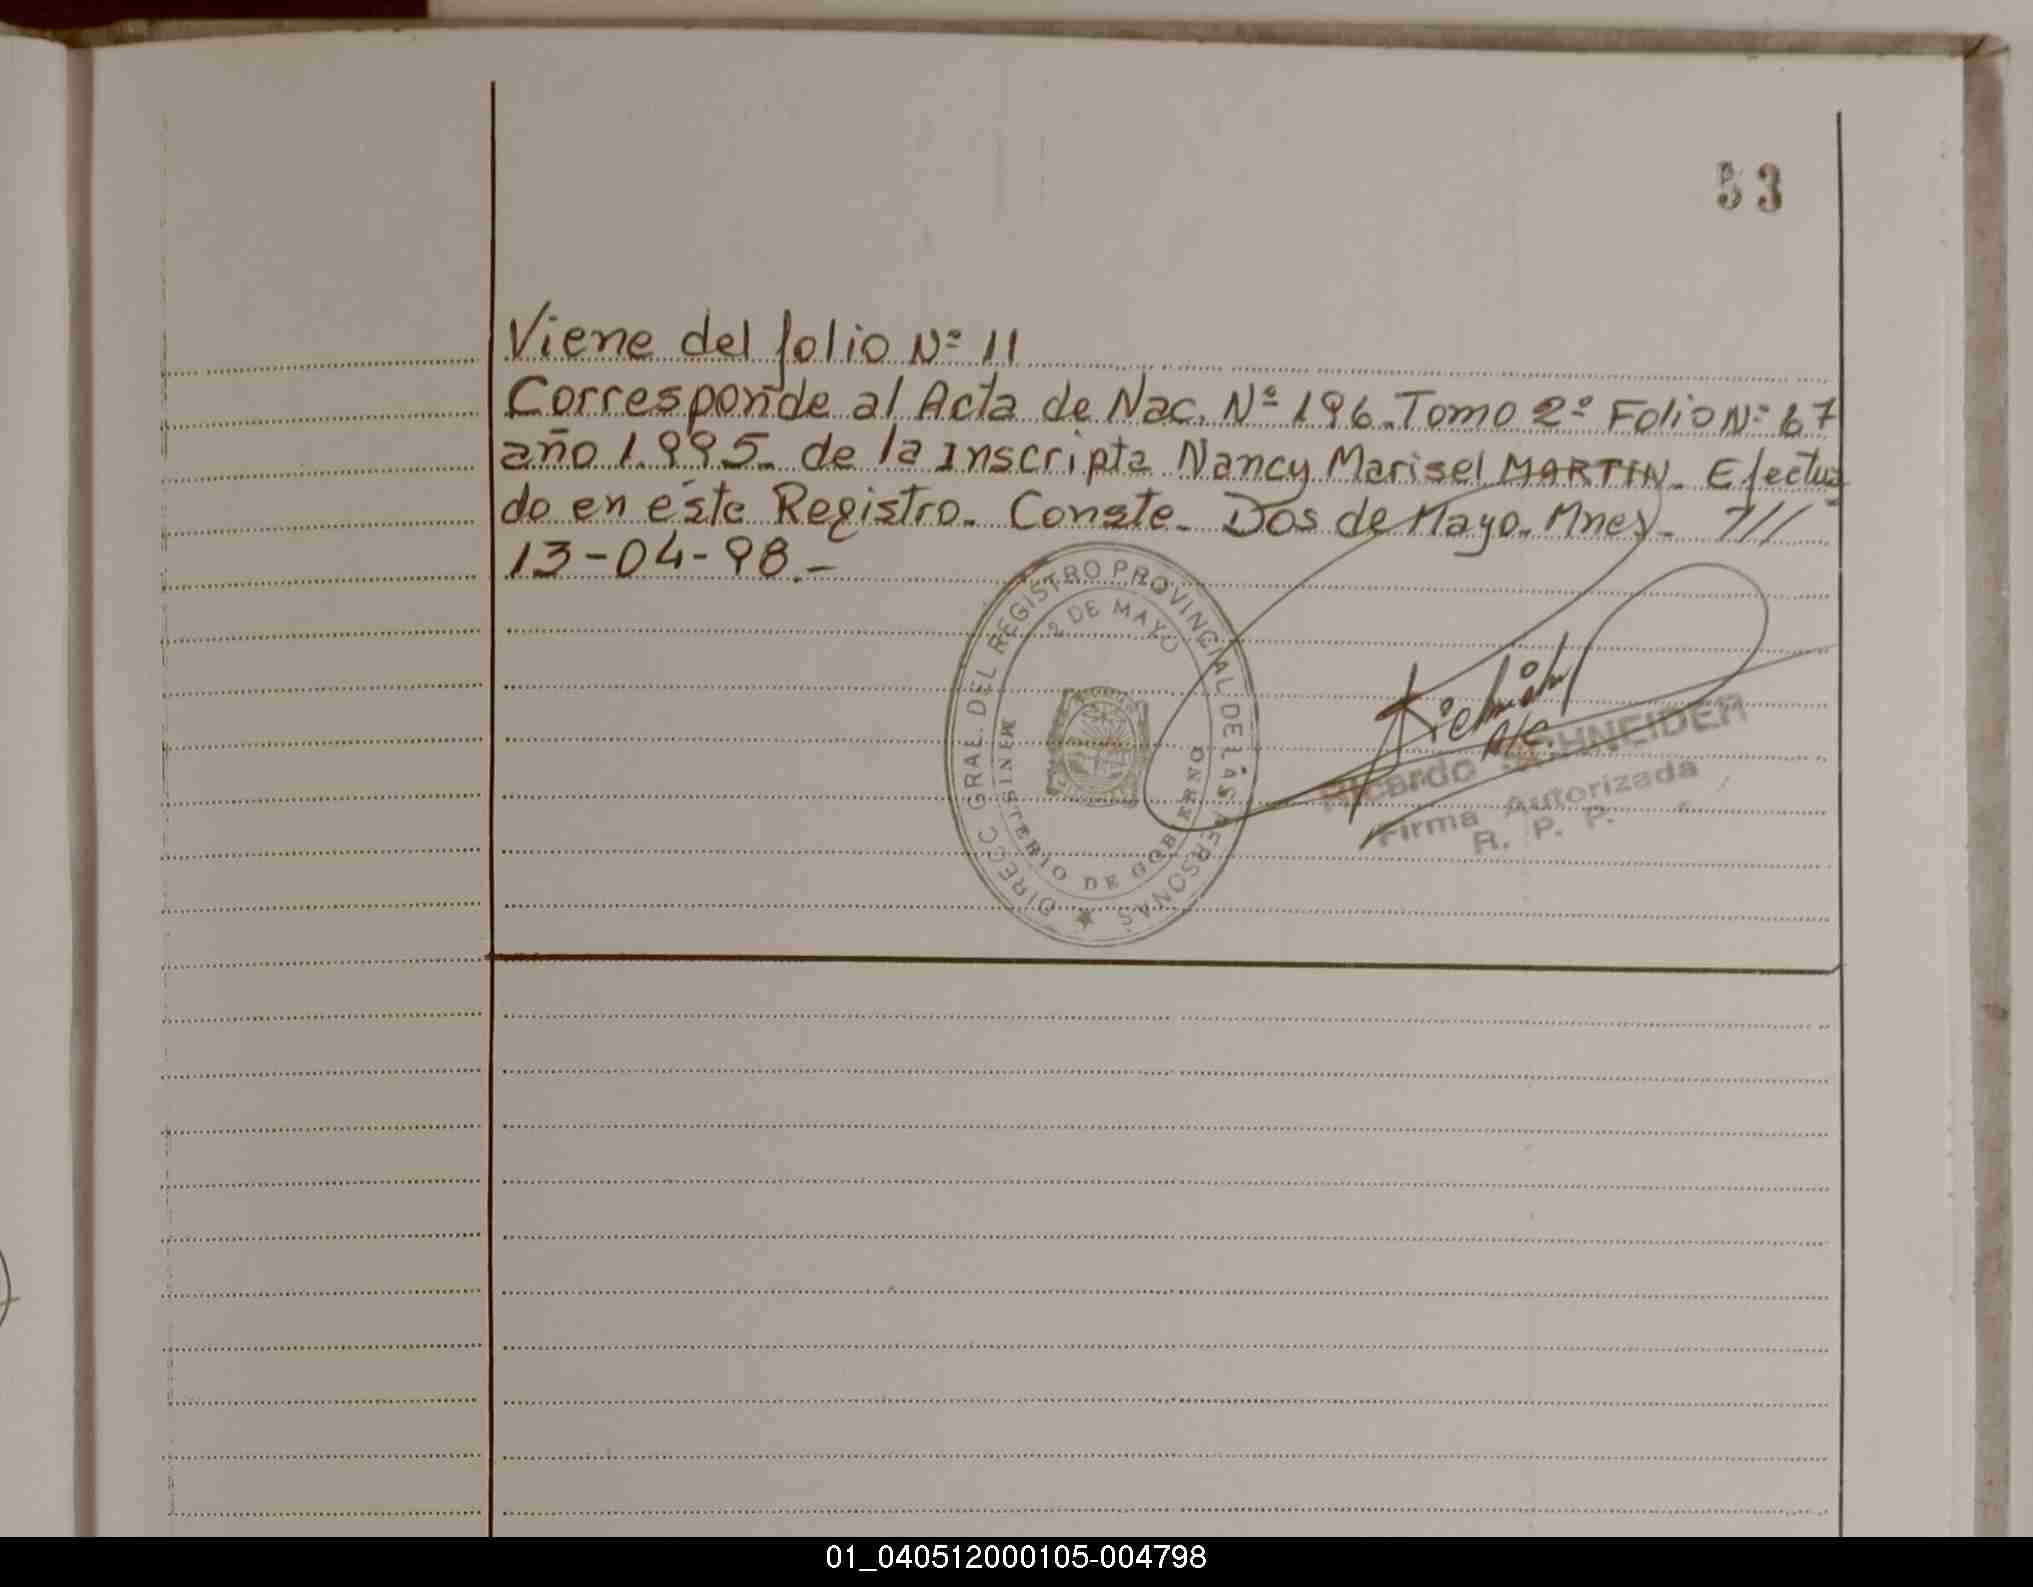 53
Viene del folio Nº 11
Corresponde al Acta de Nac. Nº 196. Tomo 2º Folio Nº 67
año 1.995. de la inscripta Nancy Marisel MARTIN. Efectua
do en éste Registro. Conste. Dos de Mayo. Mnes. ///
13-04-98.-
DIRECC GRAL. DEL REGISTRO PROVINCIAL DE LAS PERSONAS
2 DE MAYO
MINISTERIO DE GOBIERNO
Ricardo SCHNEIDER
Firma Autorizada
R. P. P.
01_040512000105-004798